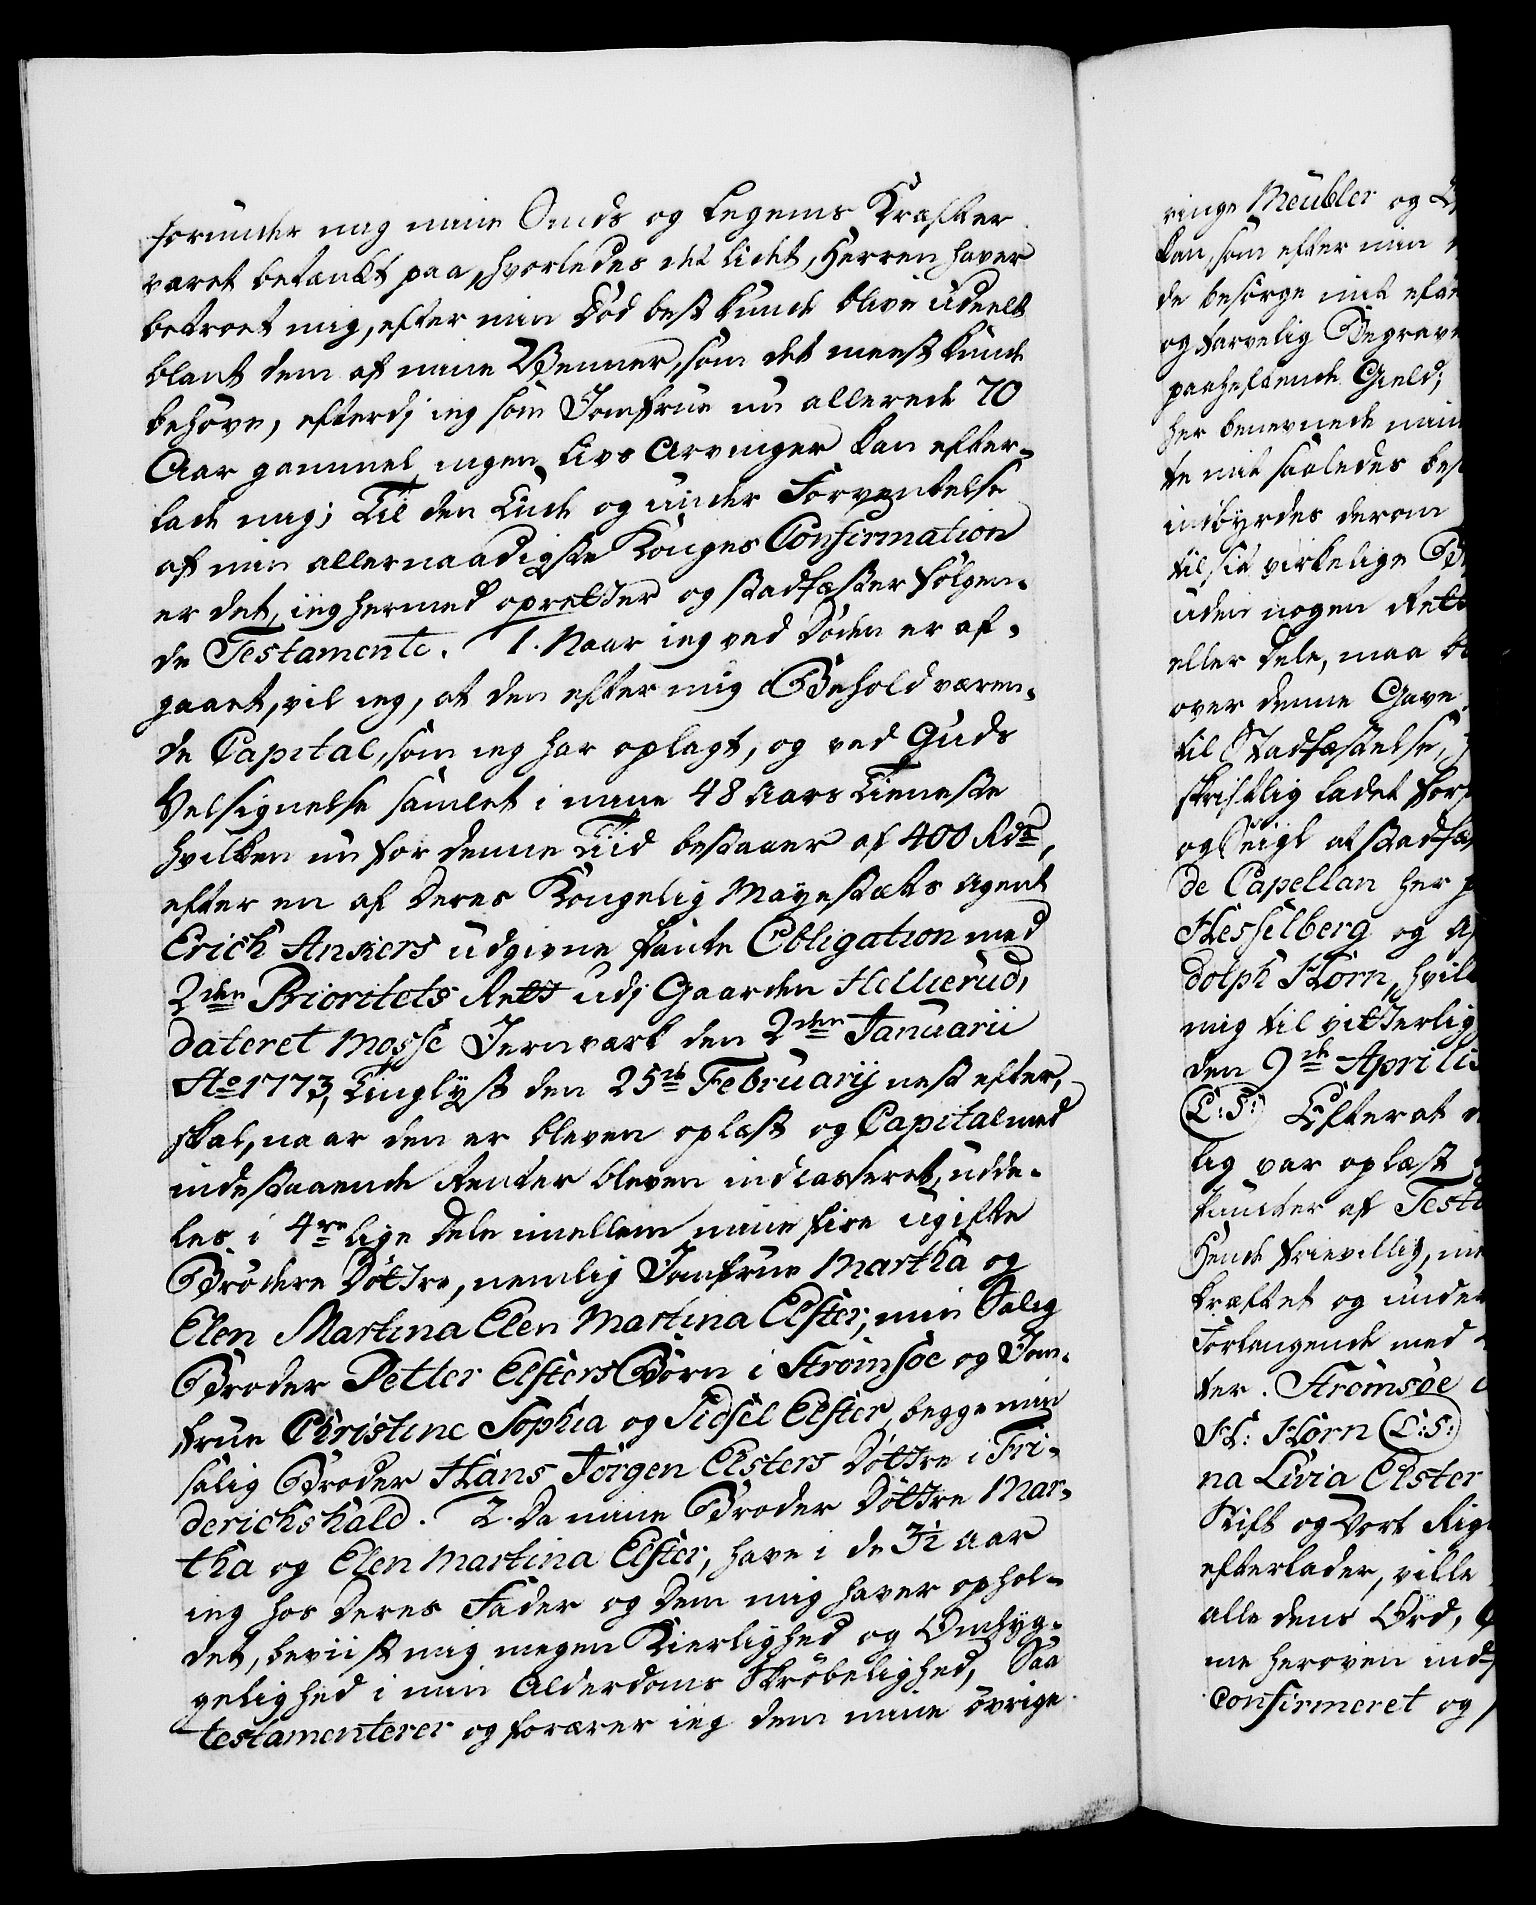 forunder mig mine Sinds og Legems Kræfter
været betænkt paa, hvorledes det lidet, Herren haver
betroet mig, efter min Død best kunde blive uddeelt
blant dem af mine Venner, som det meest kunde
behøve, efterdj ieg som Jomfrue nu allerede 70
Aar gammel ingen Livs Arvinger kan efter-
lade mig; Til den Ende og under Forventelse
af min allernaadigste Konges Confirmation
er det, ieg hermed opretter og stadfæster følgen-
de Testamente. 1. Naar ieg ved Døden er af-
gaaet, vil ieg, at den efter mig i Behold væren-
de Capital, som ieg har oplagt, og ved Guds
Velsignelse samlet i mine 48 Aars Tieneste
hvilken nu for denne Tid bestaaer af 400 Rdr,
efter en af Deres Kongelig Mayestæts Agent
Erich Ankers udgivne Pante Obligation med
2den Prioritets Rett udj Gaarden Hellierud,
dateret Mosse Jernværk den 2den Januarii
Ao 1773, Tinglyst den 25de Februarij nest efter,
skal, naar den er bleven oplæst og Capital med
indestaaende Renter bleven indcasseret, udde-
les i 4re lige Dele imellem mine fire ugifte
Brodere Døttre, nemlig Jomfrue Martha og
Elen Martina Elen Martina Elster, min Salig
Broder Petter Elsters Børn i Strømsøe og Jom-
frue Christine Sophia og Sidsel Elster, begge min
salig Broder Hans Jörgen Elsters Døttre i Fri-
derichshald. 2. Da mine Broder Døttre Mar-
tha og Elen Martina Elster, have i de 3½ Aar
ieg hos deres Fader og dem mig haver ophol-
det, beviist mig megen Kierlighed og Omhyg-
gelighed i min Alderdoms Skrøbelighed, Saa
testamenterer og forærer ieg dem mine øvrige
ringe Meubler og
kan, som efter min
de besørge mit
og tarvelig Begrav
paaheftende Gield;
her benevnede min
te mit saaledes
indbyrdes derom
til sit virkelige
uden nogen Rett
eller Dele, maa
over denne Gave
til Stadfæstelse,
skriftlig ladet
og Seigl at stadfæ
de Capellan her
Hesselberg og
dolph Horn, hvil
mig til vitterlig
den 9de Aprilis
(L:S:) Efterat
lig var oplæst
puncter af Test
Hende frievillig,
kræftet og under
Forlangende med
ter. Strømsøe
H: Horn (L:S:)
na Livia Elster
Skift og Vort Rig
efterlader, ville
alle dens Ord,
me heroven ind
confirmeret og